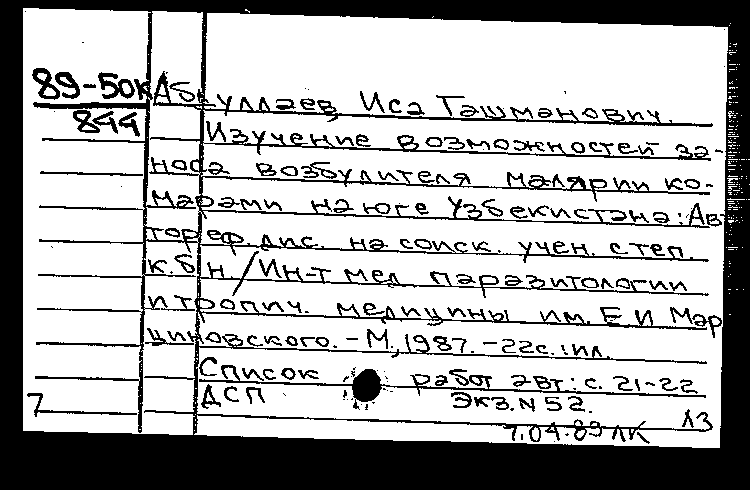 89-50к Абдуллаев, Иса Ташманович.
844
Изучение возможностей за-
носа возбудителя малярии ко-
марами на юге Узбекистана: Авт
тореф. дис. на соиск. учен. степ.
к.б н. / Ин-т мед. паразитологии
и тропич. медицины им. Е И Мар
циновского. - М., 1987. - 22с. : ил.
Список работ авт.: с. 21-22
ДСП Экз. N 52.
7 ЛЗ
7.04.89 ЛК